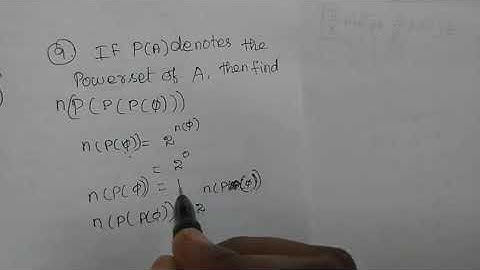 9) IF P(A) denotes the
Powerset of A, then find
n(P(P(P(ϕ)))
n(P(ϕ)) = 2^n(ϕ)
= 2^0
n(P(ϕ) = 1 n(P(ϕ))
n(P(P(ϕ)) 2